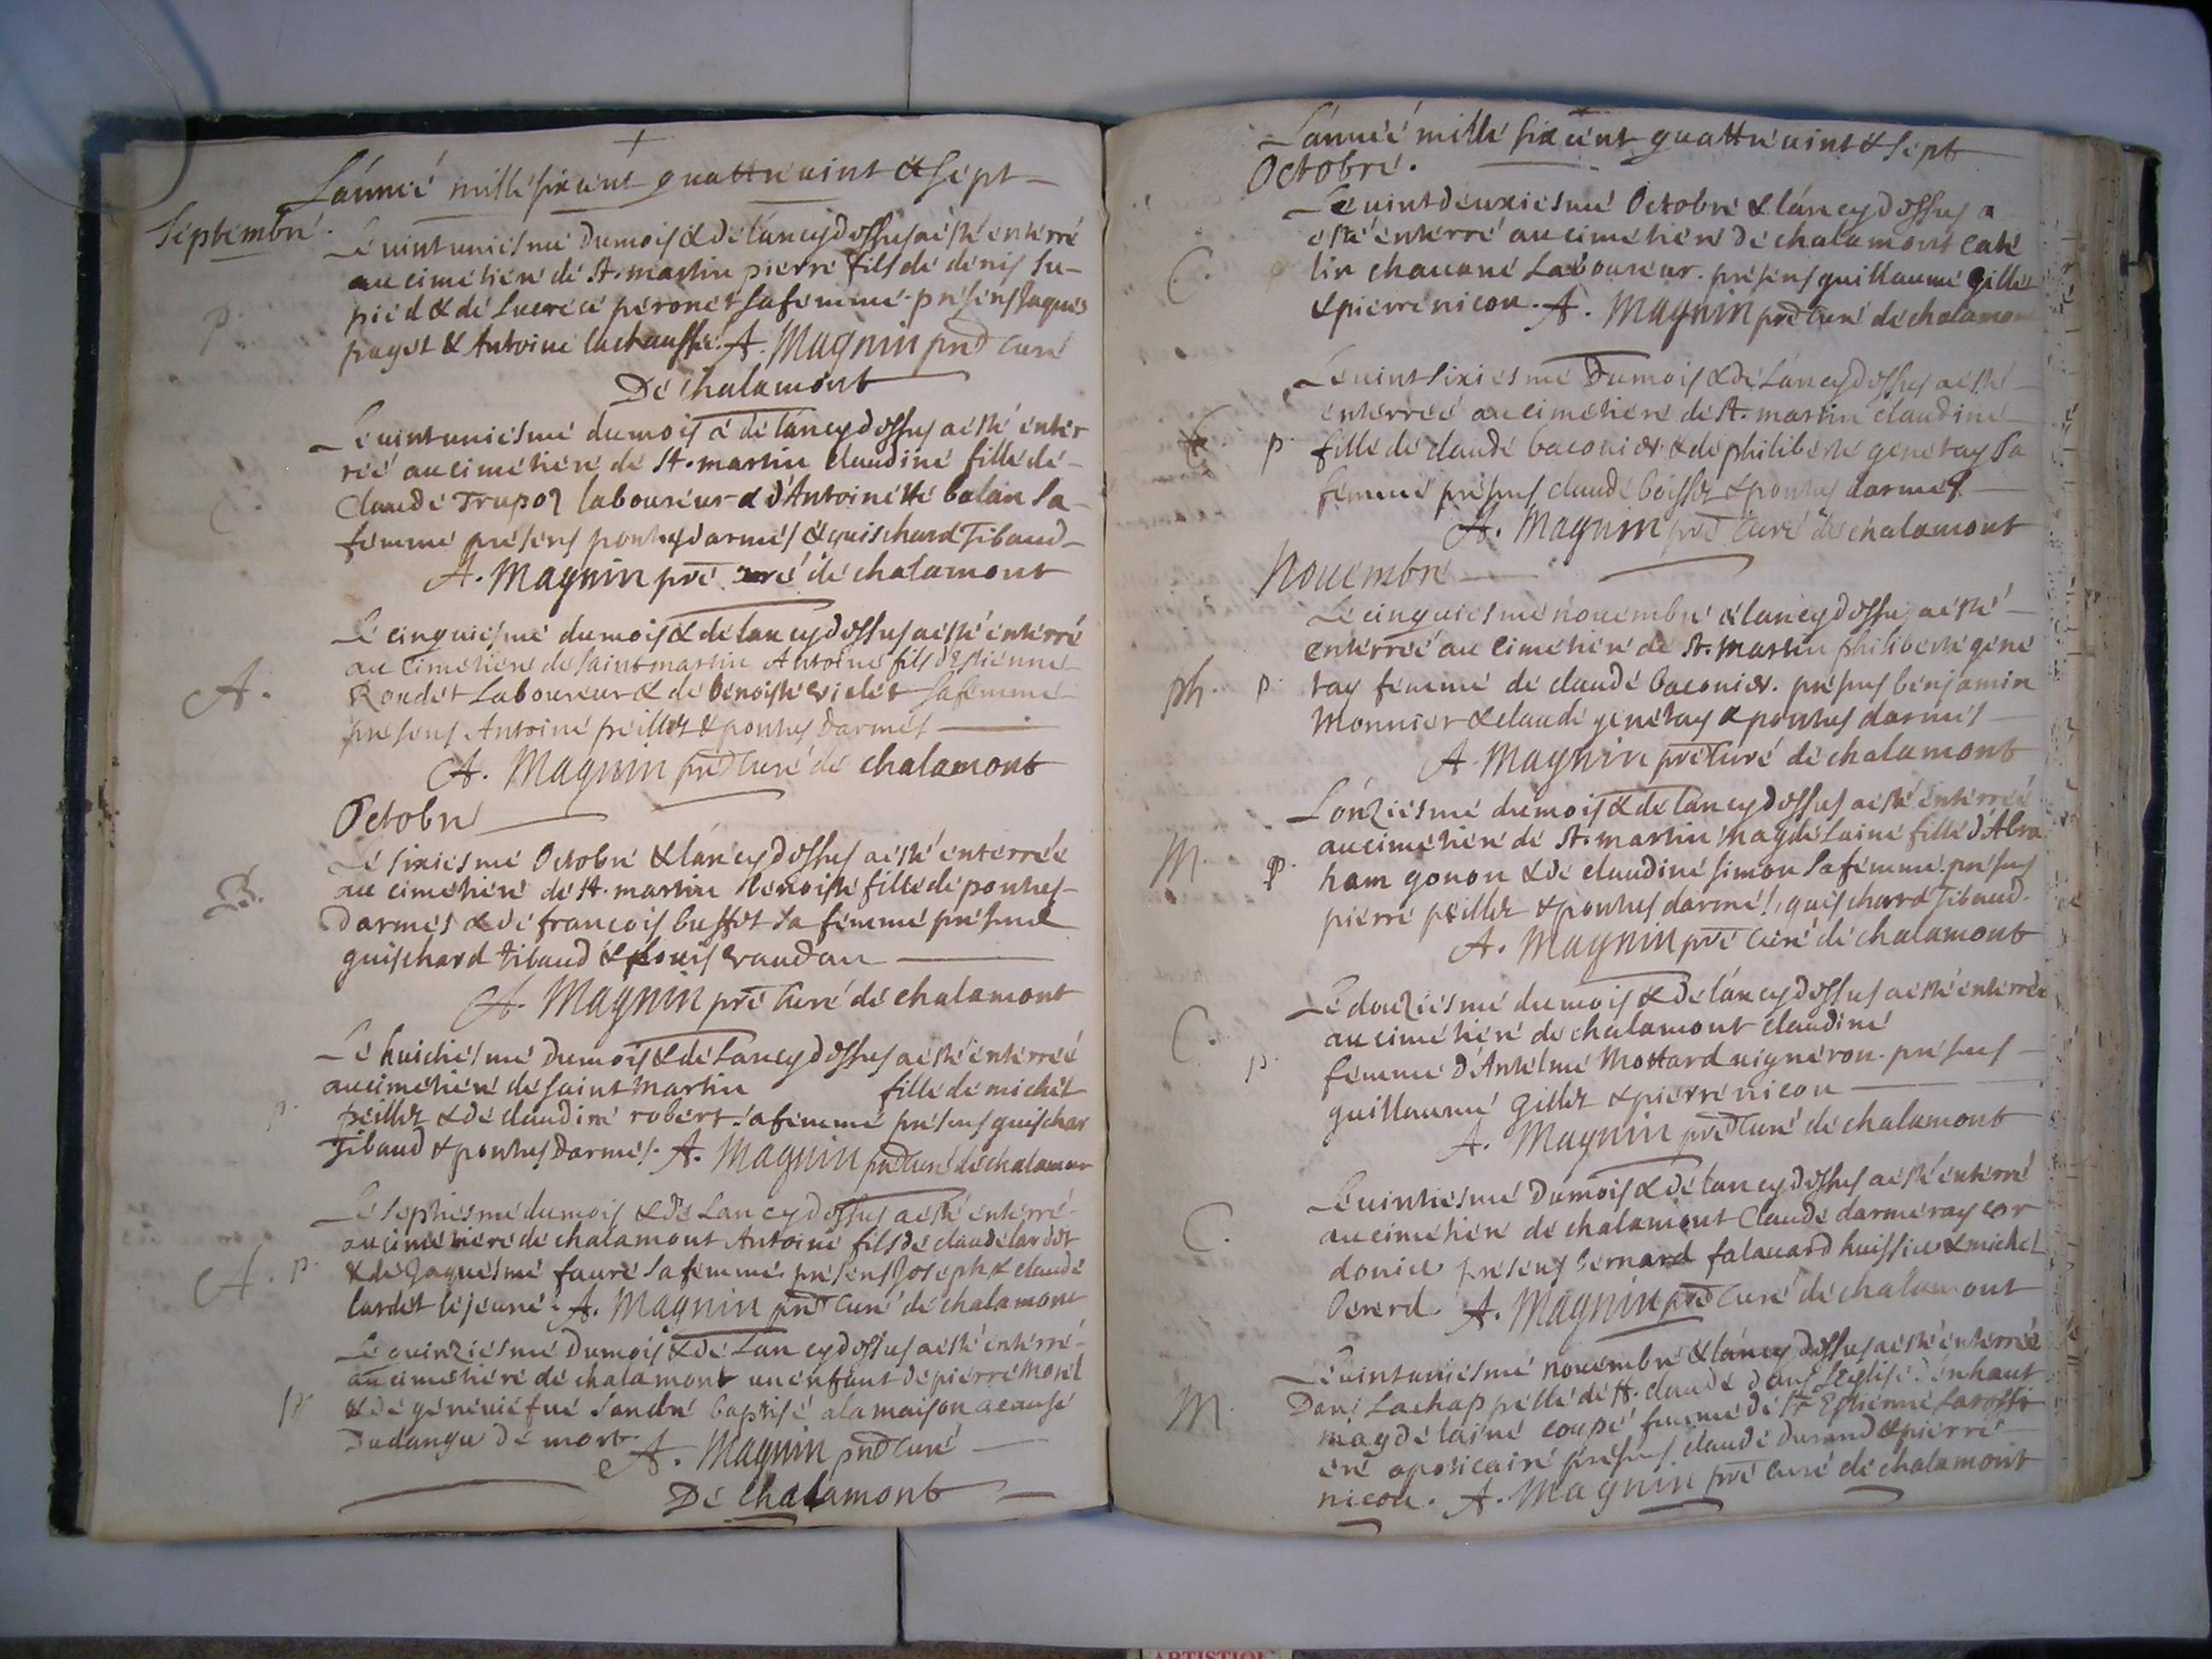 L'année mille six cent quattre uint & sept
Septembre.
Le uintuniesme du mois & de l'an cy dessus a esté enterré
au cimetiere de St. martin pierre fils de denis su-
pied & de lucrece peronet sa femme. presens Jaques
P.
paget & Antoine lachausse. A. Magnin prê curé
De chalamont
Le uintuniesme du mois & de l'an cy dessus a esté enter
reé au cimetiere de St. martin claudine fille de
C.
Claude Trupoz laboureur & d'Antoinette balan sa
femme presens ponthus darmes & guischard Tibaud
A. Magnin prê curé de chalamont
Le cinquiesme du mois & de l'an cy dessus a esté enterré
au cimetiere de saint martin Antoine fils d'Estienne
A.
Roudet Laboureur & de benoiste violet sa femme
presens Antoine peillet & ponthus darmes
A. Magnin prê curé de chalamont
Octobre
Le sixiesme Octobre & l'an cy dessus a esté enterrée
B.
au cimetiere de St. martin benoiste fille de ponthus
darmes & de françois buffet sa femme presens
guischard tibaud & louis vaudan
A. Magnin prê curé de chalamont
Le huictiesme du mois & de l'an cy dessus a esté enterreé
au cimetiere de saint martin fille de michel
p.
peillet & de claudine robert sa femme presens guischar
Tibaud & ponthus darmes. A. Magnin prê curé de chalamon
Le septiesme du mois & de l'an cy dessus a esté enterré
au cimetiere de chalamont Antoine fils de claude lardet
A. p.
& de Jaquesme faure sa femme. presens Joseph & claude
lardet le jeune. A. Magnin prê curé de chalamont
Le quinziesme du mois & de l'an cy dessus a esté enterré
au cimetiere de chalamont un enfant de pierre Morel
& de geneuiefue Sandre baptisé a la maison a cause
du danger de mort. A. Magnin prê curé
De chalamont
L'année mille six cent quattre uint & sept
Octobre.
Le uintdeuxiesme Octobre & l'an cy dessus a
esté enterré au cimetiere de chalamont cate
C.
lin chauane Laboureur. presens guillaume gillet
& pierre nicou. A. Magnin prê curé de chalamon
Le uintsixiesme du mois & de l'an cy dessus a esté
enterreé au cimetiere de St. martin claudine
C. p.
fille de claude baconier & de philiberte genetay sa
femme presens claude boisset & ponthus darmes
A. Magnin prê curé de chalamont
Nouembre
Le cinquiesme nouembre & l'an cy dessus a esté
enterreé au cimetiere de St. martin philiberte gene
ph. p.
tay femme de claude baconier. presens benjamin
Monnier & claude genetay & ponthus darmes
A. Magnin prê curé de chalamont
L'onziesme du mois & de l'an cy dessus a esté enterreé
au cimetiere de St. martin magdelaine fille d'Abra
M. p.
ham gonon & de claudine simon sa femme. presens
pierre peillet & ponthus darmes, guischard Tibaud.
A. Magnin prê curé de chalamont
Le douziesme du mois & de l'an cy dessus a esté enterrée
C.
au cimetiere de chalamont claudine
p.
femme d'Antelme Mottard uigneron. presens
guillaume gillet & pierre nicou
A. Magnin prê curé de chalamont
Le uintiesme du mois & de l'an cy dessus a esté enterré
C.
au cimetiere de chalamont Claude darmeray cor
donier presens bernard falauard huissier & michel
bererd. A. Magnin prê curé de chalamont
Le uintuniesme nouembre & l'an cy dessus a esté enterrée
M.
Dans La chappelle de St. claude dans L'Eglise d'enhaut
magdelaine coupé femme de Estienne
apoticaire presens claude durand & pierre
nicou. A. Magnin prê curé de chalamont
ARTISTIQUE